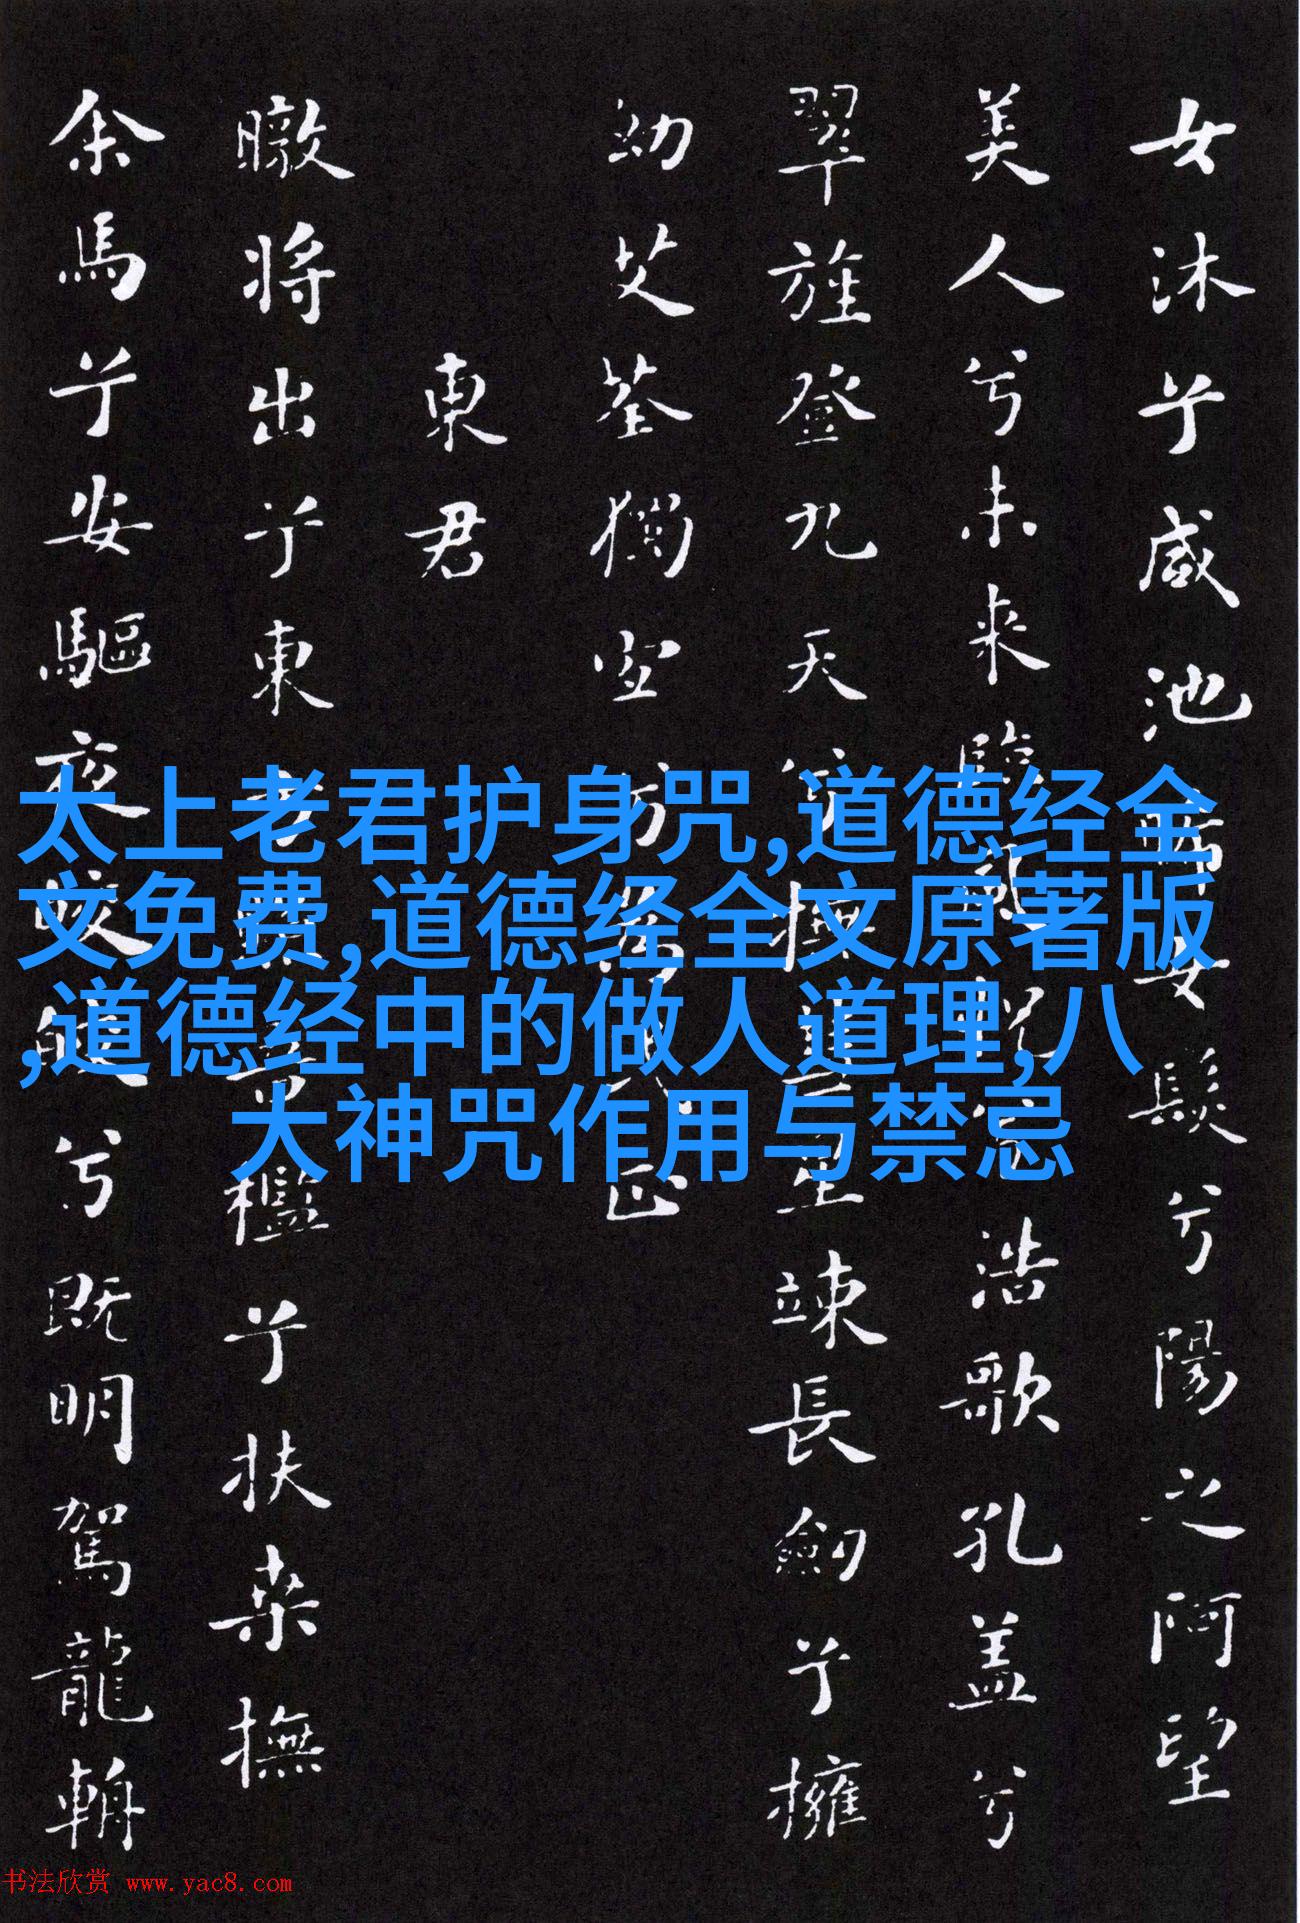 女沐兮咸池女髮兮陽之阿望
美人兮未来臨風浩歌孔盖兮
翠旌登九天兮撫彗星竦長劍兮擁
幼艾荃獨宜兮為民正
東君
暾將出兮東方照吾檻兮扶桑撫
余馬兮安驅夜皎皎兮既明駕龍輈
太上老君护身咒,道德经全
文免费,道德经全文原著版
,道德经中的做人道理,八
大神咒作用与禁忌
书法欣赏 www.yac8.com